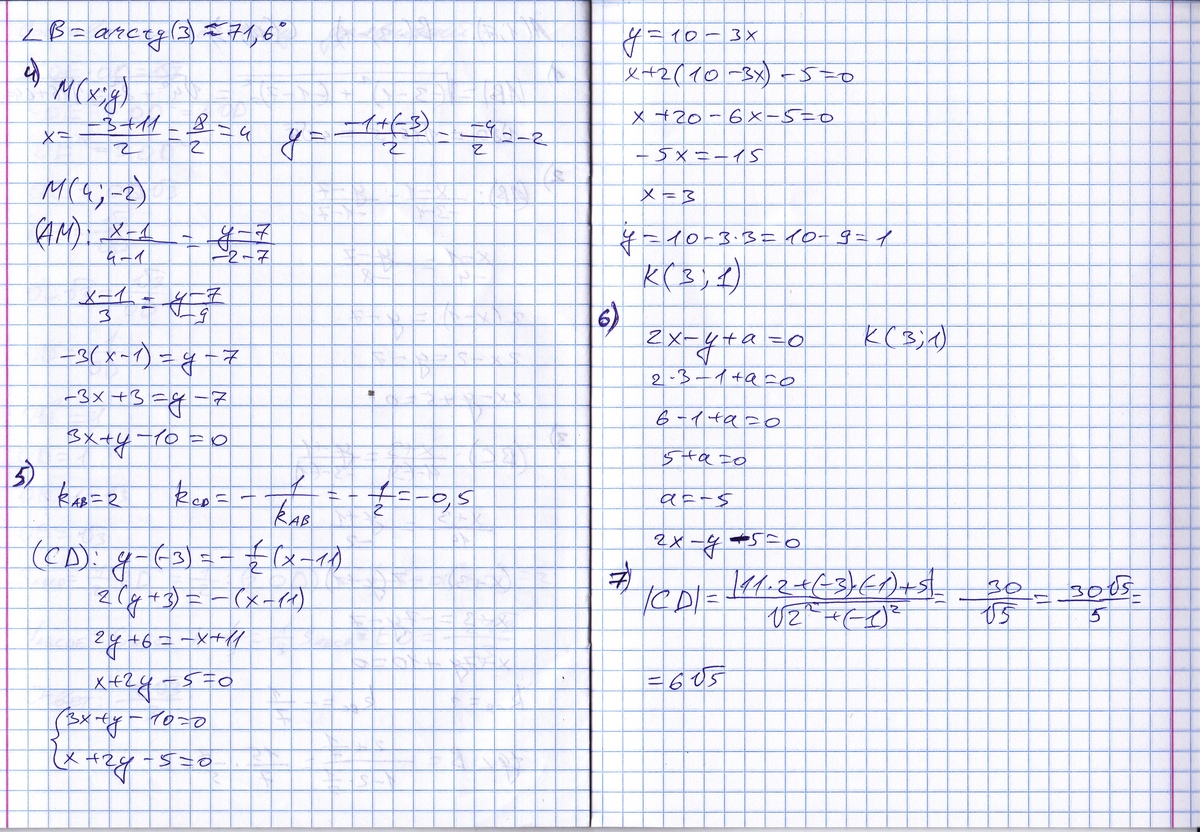 ∠B = arctg(3) ≈ 71,6°
4)
M(x;y)
x = (-3+11)/2 = 8/2 = 4   y = (-1+(-3))/2 = -4/2 = -2
M(4;-2)
(AM): (x-1)/(4-1) = (y-7)/(-2-7)
(x-1)/3 = (y-7)/(-9)
-3(x-1) = y-7
-3x+3 = y-7
3x+y-10=0
5)
k_AB = 2   k_CD = - 1/k_AB = - 1/2 = -0,5
(CD): y-(-3) = - 1/2 (x-11)
2(y+3) = -(x-11)
2y+6 = -x+11
x+2y-5=0
{3x+y-10=0
x+2y-5=0
y = 10-3x
x+2(10-3x)-5=0
x+20-6x-5=0
-5x=-15
x=3
y=10-3·3=10-9=1
K(3;1)
6)
2x-y+a=0   K(3;1)
2·3-1+a=0
6-1+a=0
5+a=0
a=-5
2x-y-5=0
7)
|CD| = |11·2+(-3)·(-1)+5|/√(2²+(-1)²) = 30/√5 = 30√5/5 =
= 6√5